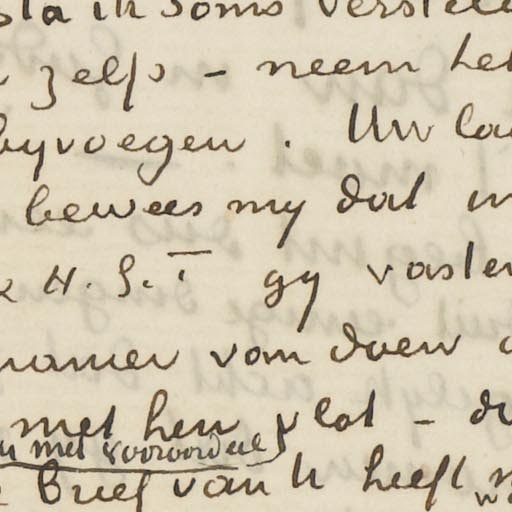 sta ik soms verstele
zelfs – neem het
byvoegen . Uw la
bewees my dat
& H. G. T gy vaster
manier van doen
met hen vlot – d
met vooroordeel
Brief van U heeft